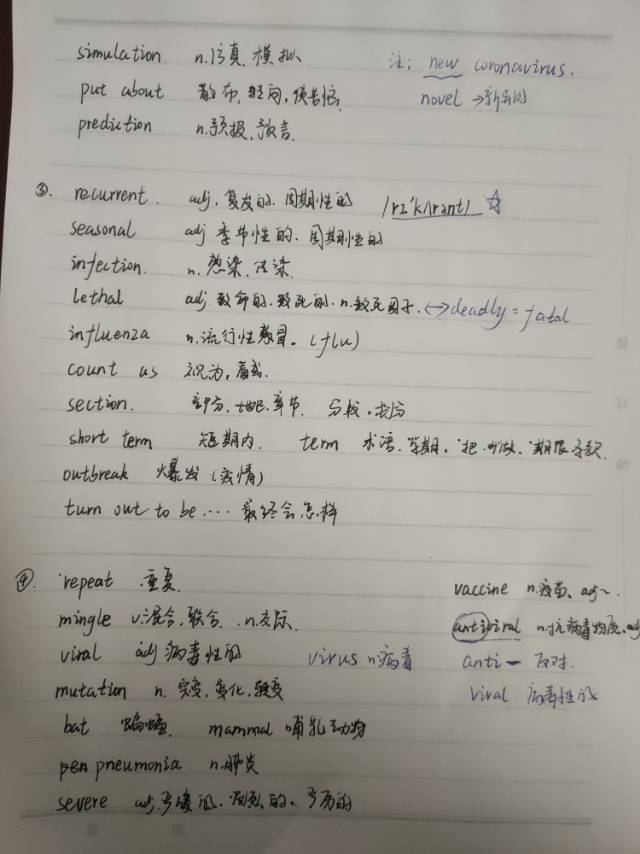 simulation n.仿真,模拟 注: new coronavirus.
put about 散布,转向,使苦恼 novel → 新的
prediction n.预报,预言
③. recurrent. adj.复发的.周期性的 /rɪ'kʌrənt/ ☆
seasonal adj 季节性的.周期性的
infection. n.感染,传染
lethal adj 致命的.致死的.n.致死因子. ↔ deadly = fatal
influenza n.流行性感冒.(flu)
count as 视为,看成.
section. 部分,地区.章节.
short term 短期内. term 术语.学期.把..叫做.期限
outbreak 爆发(疫情)
turn out to be .... 最终会怎样
④. repeat 重复
mingle v.混合.联合.n.交际. vaccine n.疫苗.adj~.
viral adj 病毒性的 virus n病毒 antiviral n.抗病毒物质.adj
mutation n.突变,变化.转变 anti- 反对.
bat 蝙蝠. mammal 哺乳动物 viral 病毒性的
pneumonia n.肺炎
severe adj.严峻的.剧烈的.严厉的